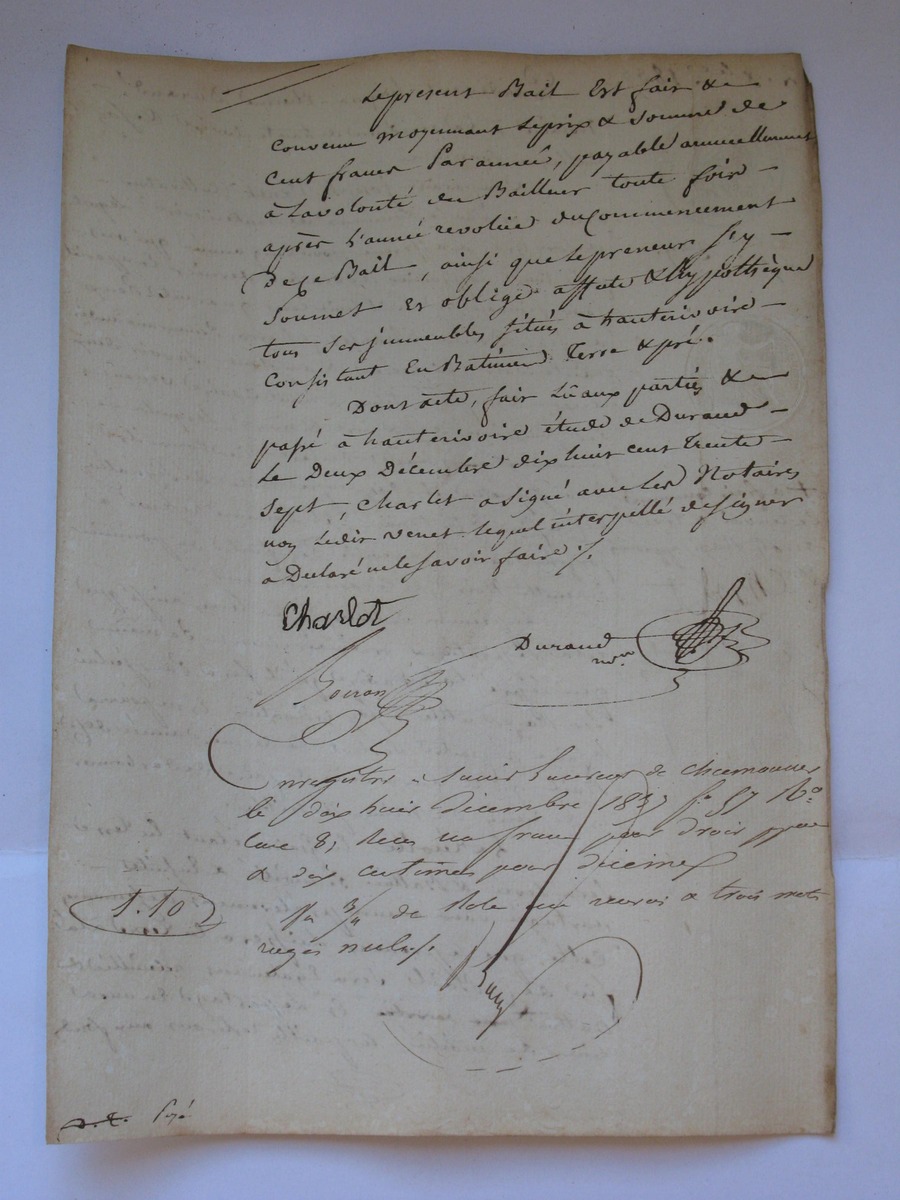 Le present Bail Est fait &
Convenu moyennant Le prix & Somme de
Cent francs Par année, payable annuellement
à La volonté du Bailleur toute fois
après L'année revolue du Commencement
De ce Bail, ainsi que Le preneur s'y
Soumet Et oblige affecte & hypothèque
tous ses immeubles situés à hauterivoire
Consistant En Batiment Terre & pré.
Dont acte, fait Lû aux parties &
passé à hauterivoire étude de Durand
Le Deux Décembre dix huit cent Trente
Sept, Charlet a signé avec Les Notaires
non Ledit Venet lequel interpellé de signer
a Declaré ne le savoir faire ./.
Charlot
Durand
Enregistré à Saint Laurent de chamousset
le dix huit Décembre 1837 fo 57 Ro
case 8, Recu un franc pour droit
& dix centimes pour Décime
1.10
de Role un renvoi & trois mots
rayés nuls ./.
Payé